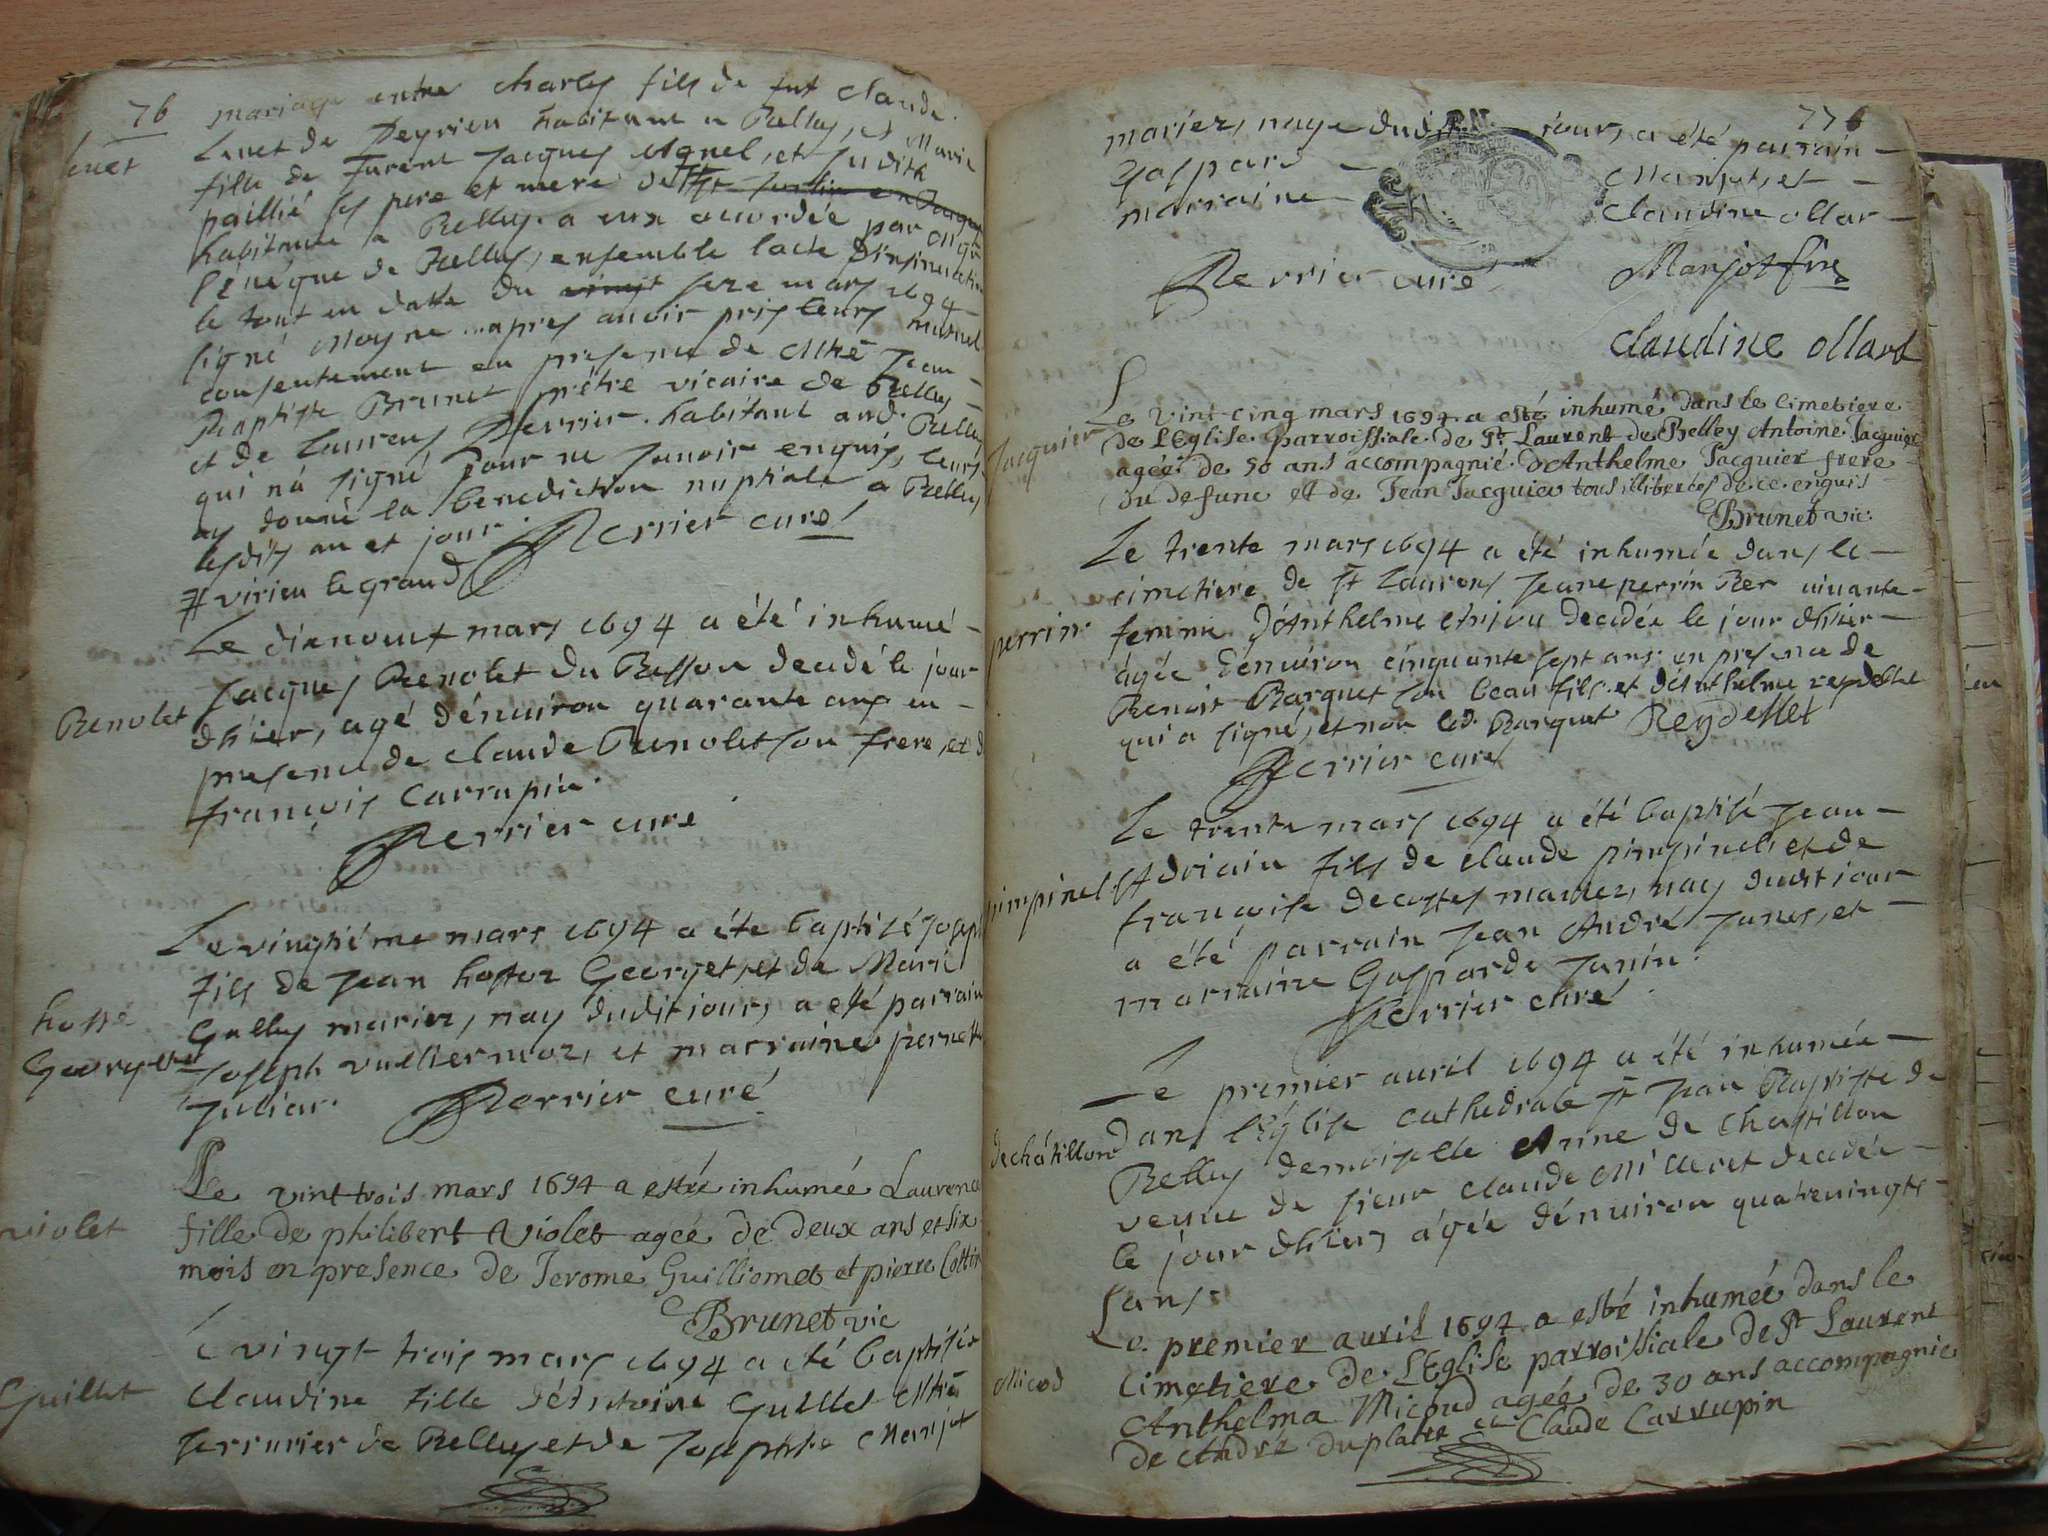 76
mariage entre Charles fils de fut Claude
Luet de Peyrieu habitant a Belley, et Marie
fille de furent Jacques Ugnel, et Judith
paillié ses pere et mere de
habitante a Belley a eux accordée par Mgr
l'évêque de Belley, ensemble lacte d'insinuation
le tout en datte du vingt seze mars 1694
signé Moyne apres avoir pris leurs mutuel
consentement en presence de Mre Jean
Baptiste Brunet prêtre vicaire de Belley
et de Laurens Perrier habitant aud. Belley
qui na signé pour ne scavoir enquis, leurs
ay donné la benediction nuptiale a Belley
lesdits an et jour. Perrier curé
# virieu le grand
Le dixneuf mars 1694 a été inhumé
Benolet
Jacques Benolet du Bisson decedé le jour
dhier, agé dénuiron quarante ans en
presence de Claude Benolet son frere, et d
françois Carrupin
Perrier curé
Le vingtiéme mars 1694 a éte baptisé Joseph
hoste
Georget
fils de Jean hostoz Georget, et de Marie
Gulley mariez, nay dudit jour, a esté parrain
Joseph vulliermoz, et marraine pernette
Juliar. Perrier curé
Le vint trois mars 1694 a esté inhumée Laurence
violet
fille de philibert Violet ageé de deux ans et six
mois en presence de Jerome Guilliomet et pierre Cottin
Brunet vic
e vingt trois mars 1694 a été baptisée
Guillet
Claudine fille d'Antoine Guillet Mtre
serrurier de Belley et de Josephte Manjot
776
mariez, naye dudit jour, a été parrain
Gaspard Manjot, et
marraine Claudine ollar
Perrier curé Manjot fire
Claudine ollard
Le vint cinq mars 1694 a esté inhumé dans le cimetiere
Jacquier
de l'Eglise parroissiale de St Laurent de Belley Antoine Jacquier
ageé de 50 ans accompagnié d'Anthelme Jacquier frere
du defunc et de Jean Jacquier tous illiberes de ce enquis
Brunet vic.
Le trente mars 1694 a été inhumée dans le
cimetiere de St Laurens Jeane perrin Ber vivante
perrin
femme d'Anthelme decedée le jour dhier
ágée dénuiron cinquante sept ans en presence de
Benoit Barquet son beau fils et d'Anthelme reydellet
qui a signé, et non led. Barquet Reydellet
Perrier curé
Le trente mars 1694 a été baptisé Jean
pimpinel
Adriain fils de Claude pimpinel et de
françoise decostes mariez, nay dudit jour
a été parrain Jean André Janes, et
marraine Gasparde Janin.
Perrier curé
Le premier auril 1694 a été inhumée
dechâtillon
dans l'église cathedrale St Jean Baptiste de
Belley demoiselle Anne de Chastillon
veuue de sieur Claude Millieret decedée
le jour dhier, ágée dénuiron quatreuingts
ans.
Le premier auril 1694 a esté inhumeé dans le
Micod
Cimetiere de l'Eglise parroissiale de St Laurent
Anthelma Micoud ageé de 30 ans accompagnie
de André duplatre et Claude Carrupin